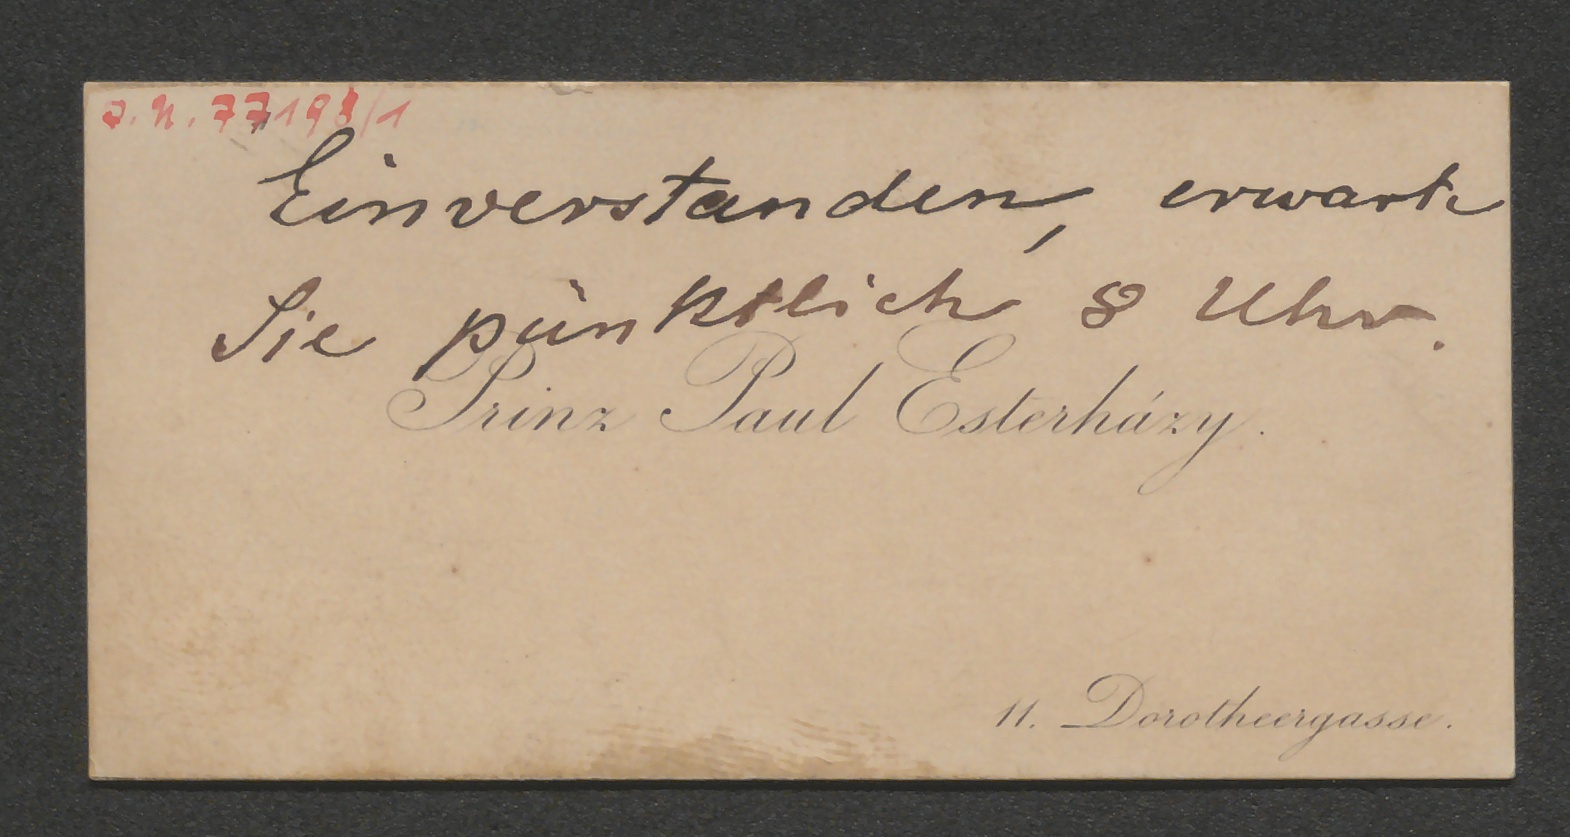 J.N. 77198/1
Einverstanden, erwarte
Sie pünktlich 8 Uhr.
Prinz Paul Esterházy.
11. Dorotheergasse.